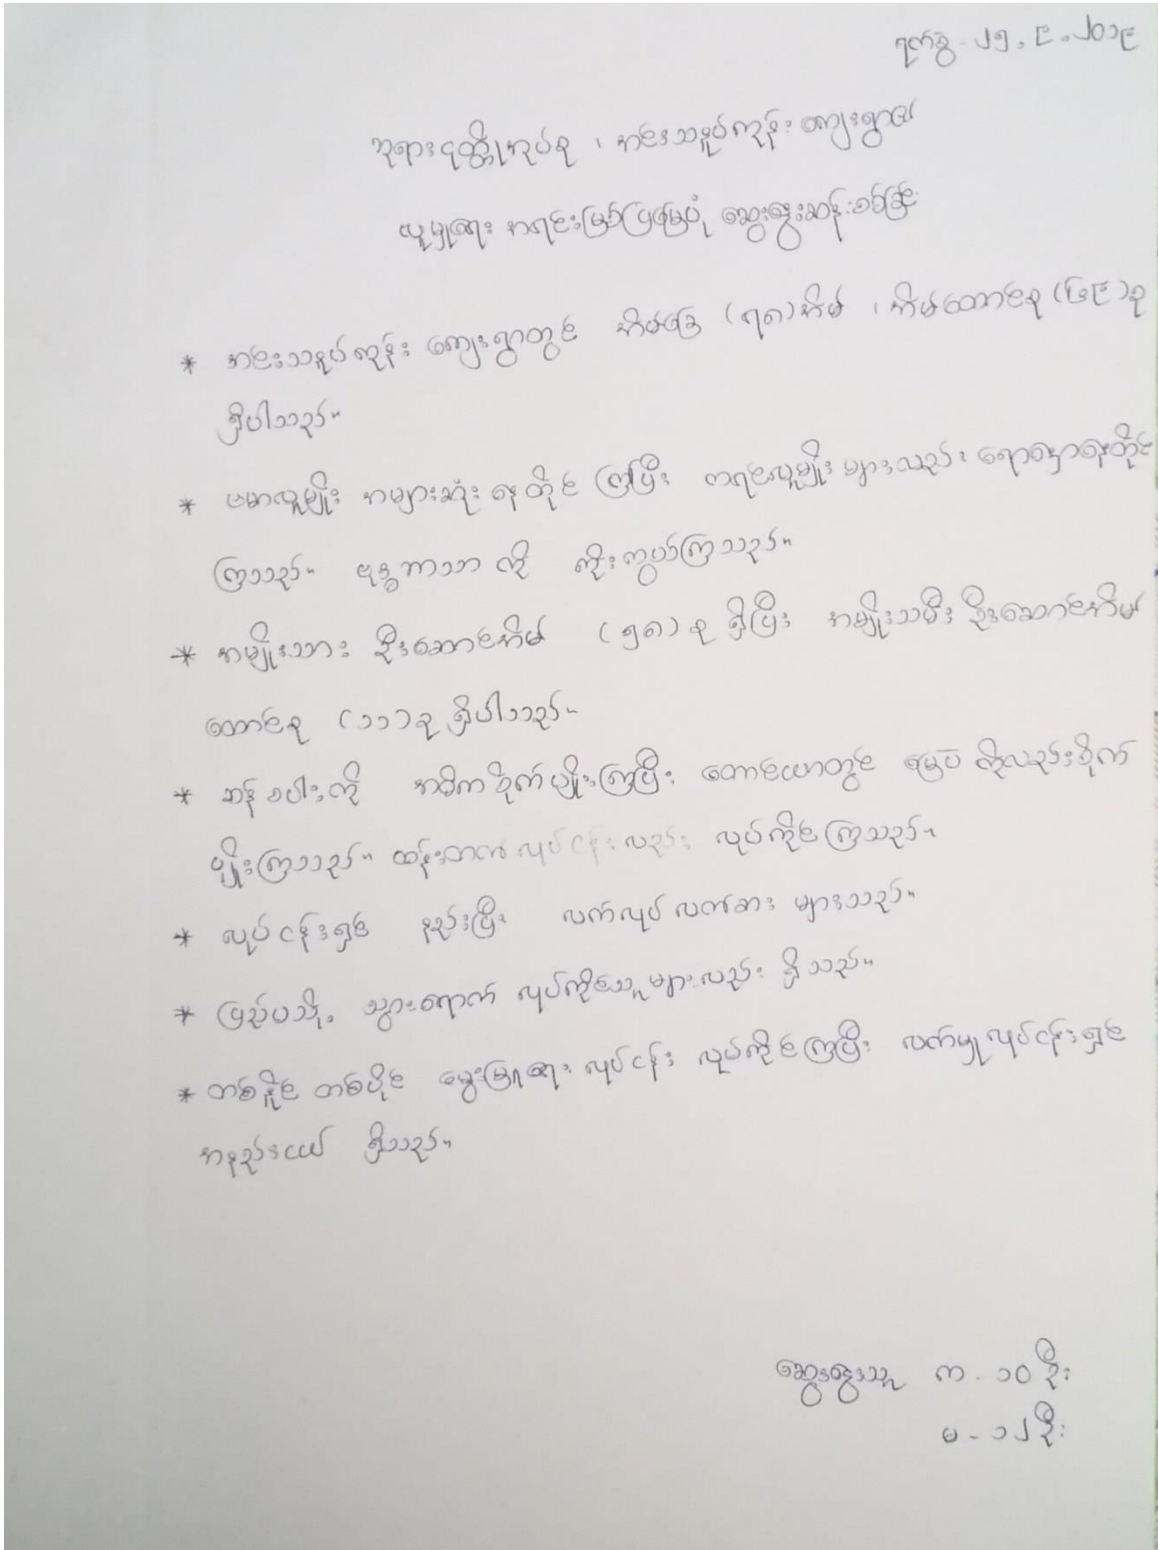 ရက်စွဲ - ၂၅.၉.၂၀၁၉
ဘုရားငုတ္တိုအုပ်စု ၊ အင်းသနပ်ကုန်း ကျေးရွာ၏
လူမှုရေး အရင်းမြစ်ပြမြေပုံ ဆွေးနွေးဆန်းစစ်ခြင်း
* အင်းသနပ်ကုန်း ကျေးရွာတွင် အိမ်ခြေ (၇၈) အိမ် ၊ အိမ်ထောင်စု (၆၉) စု
ရှိပါသည်။
* ဗမာလူမျိုး အများဆုံး နေထိုင် ကြပြီး ကရင်လူမျိုး များလည်း ရောနှောနေထိုင်
ကြသည်။ ဗုဒ္ဓဘာသာ ကို ကိုးကွယ်ကြသည်။
* အမျိုးသား ဦးဆောင်အိမ် (၅၈) စု ရှိပြီး အမျိုးသမီး ဦးဆောင်အိမ်
ထောင်စု (၁၁) စု ရှိပါသည်။
* ဆန်စပါးကို အဓိကစိုက်ပျိုးကြပြီး တောင်ယာတွင် မြေပဲ ကိုလည်းစိုက်
ပျိုးကြသည်။ ထန်းတက်လုပ်ငန်းလည်း လုပ်ကိုင်ကြသည်။
* လုပ်ငန်းရှင် နည်းပြီး လက်လုပ်လက်စား များသည်။
* ပြည်ပသို့ သွားရောက် လုပ်ကိုင်သူများလည်း ရှိသည်။
* တစ်နိုင် တစ်ပိုင် မွေးမြူရေး လုပ်ငန်း လုပ်ကိုင်ကြပြီး လက်မှုလုပ်ငန်းရှင်
အနည်းငယ် ရှိသည်။
ဆွေးနွေးသူ က - ၁၀ ဦး
မ - ၁၂ ဦး